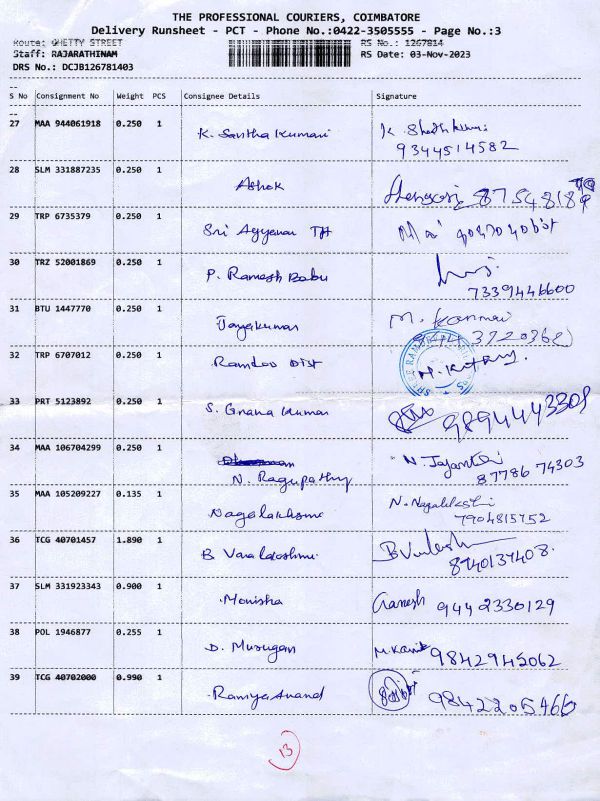 THE PROFESSIONAL COURIERS, COIMBATORE
Delivery Runsheet - PCT - Phone No.:0422-3505555 - Page No.:3
Route: GHETTY STREET RS No.: 1267814
Staff: RAJARATHINAM RS Date: 03-Nov-2023
DRS No.: DCJB126781403
--
S No Consignment No Weight PCS Consignee Details Signature
--
27 MAA 944061918 0.250 1 K. Santha Kumari
9344514582
28 SLM 331887235 0.250 1 Ashok
29 TRP 6735379 0.250 1 Sri
30 TRZ 52001869 0.250 1 P. Ramesh Babu
7339446600
31 BTU 1447770 0.250 1 Jayakumar M.
32 TRP 6707012 0.250 1 Dist
33 PRT 5123892 0.250 1 S. Gnana Kumar
34 MAA 106704299 0.250 1 N.
N. Ragupathy 87786 74303
35 MAA 105209227 0.135 1 Nagalakshmi N.
7904815752
36 TCG 40701457 1.890 1 B
37 SLM 331923343 0.900 1 Monisha Ganesh 9442330129
38 POL 1946877 0.255 1 D. Murugan 9842945062
39 TCG 40702000 0.990 1 Ramya Anand 9842205466
13